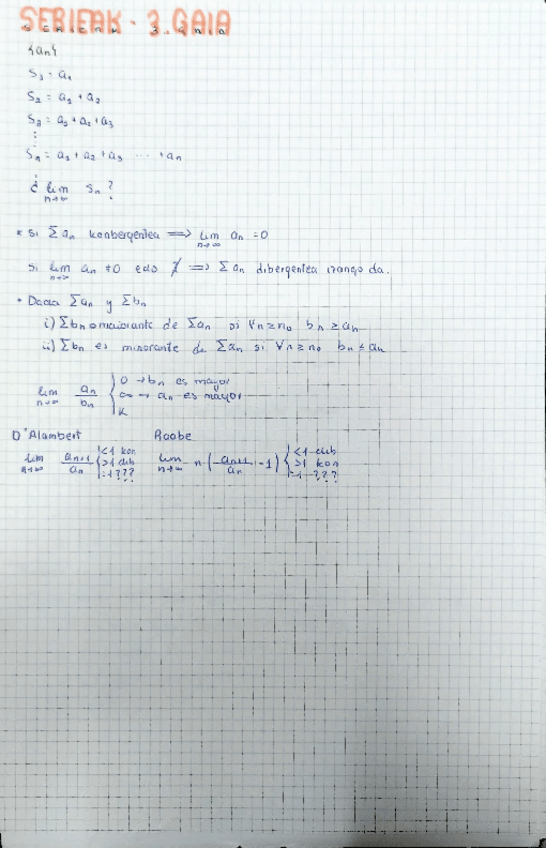 SERIEAK - 3. GAIA
{an}
S₁ = a₁
S₂ = a₁ + a₂
S₃ = a₁ + a₂ + a₃
⋮
Sₙ = a₁ + a₂ + a₃ ... + aₙ
¿ lim n→∞ Sₙ ?
* Si Σ aₙ konbergentea ⟹ lim n→∞ aₙ = 0
Si lim n→∞ aₙ ≠ 0 edo ∄ ⟹ Σ aₙ dibergentea izango da.
* Dada Σaₙ y Σbₙ
i) Σbₙ maiorante de Σaₙ si ∀n ≥ n₀ bₙ ≥ aₙ
ii) Σbₙ es minorante de Σaₙ si ∀n ≥ n₀ bₙ ≤ aₙ
lim n→∞ aₙ/bₙ { 0 → bₙ es mayor
∞ → aₙ es mayor
K
D'Alambert Raabe
lim n→∞ aₙ₊₁/aₙ { <1 kon >1 dib =1 ??? lim n→∞ n (aₙ₊₁/aₙ - 1) { <1 dib >1 kon =1 ???